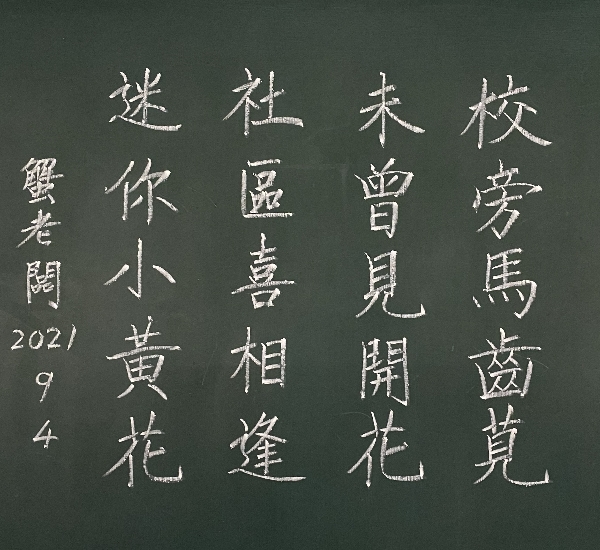 校旁馬齒莧
未曾見開花
社區喜相逢
迷你小黃花
蟹老闆 2021 9 4